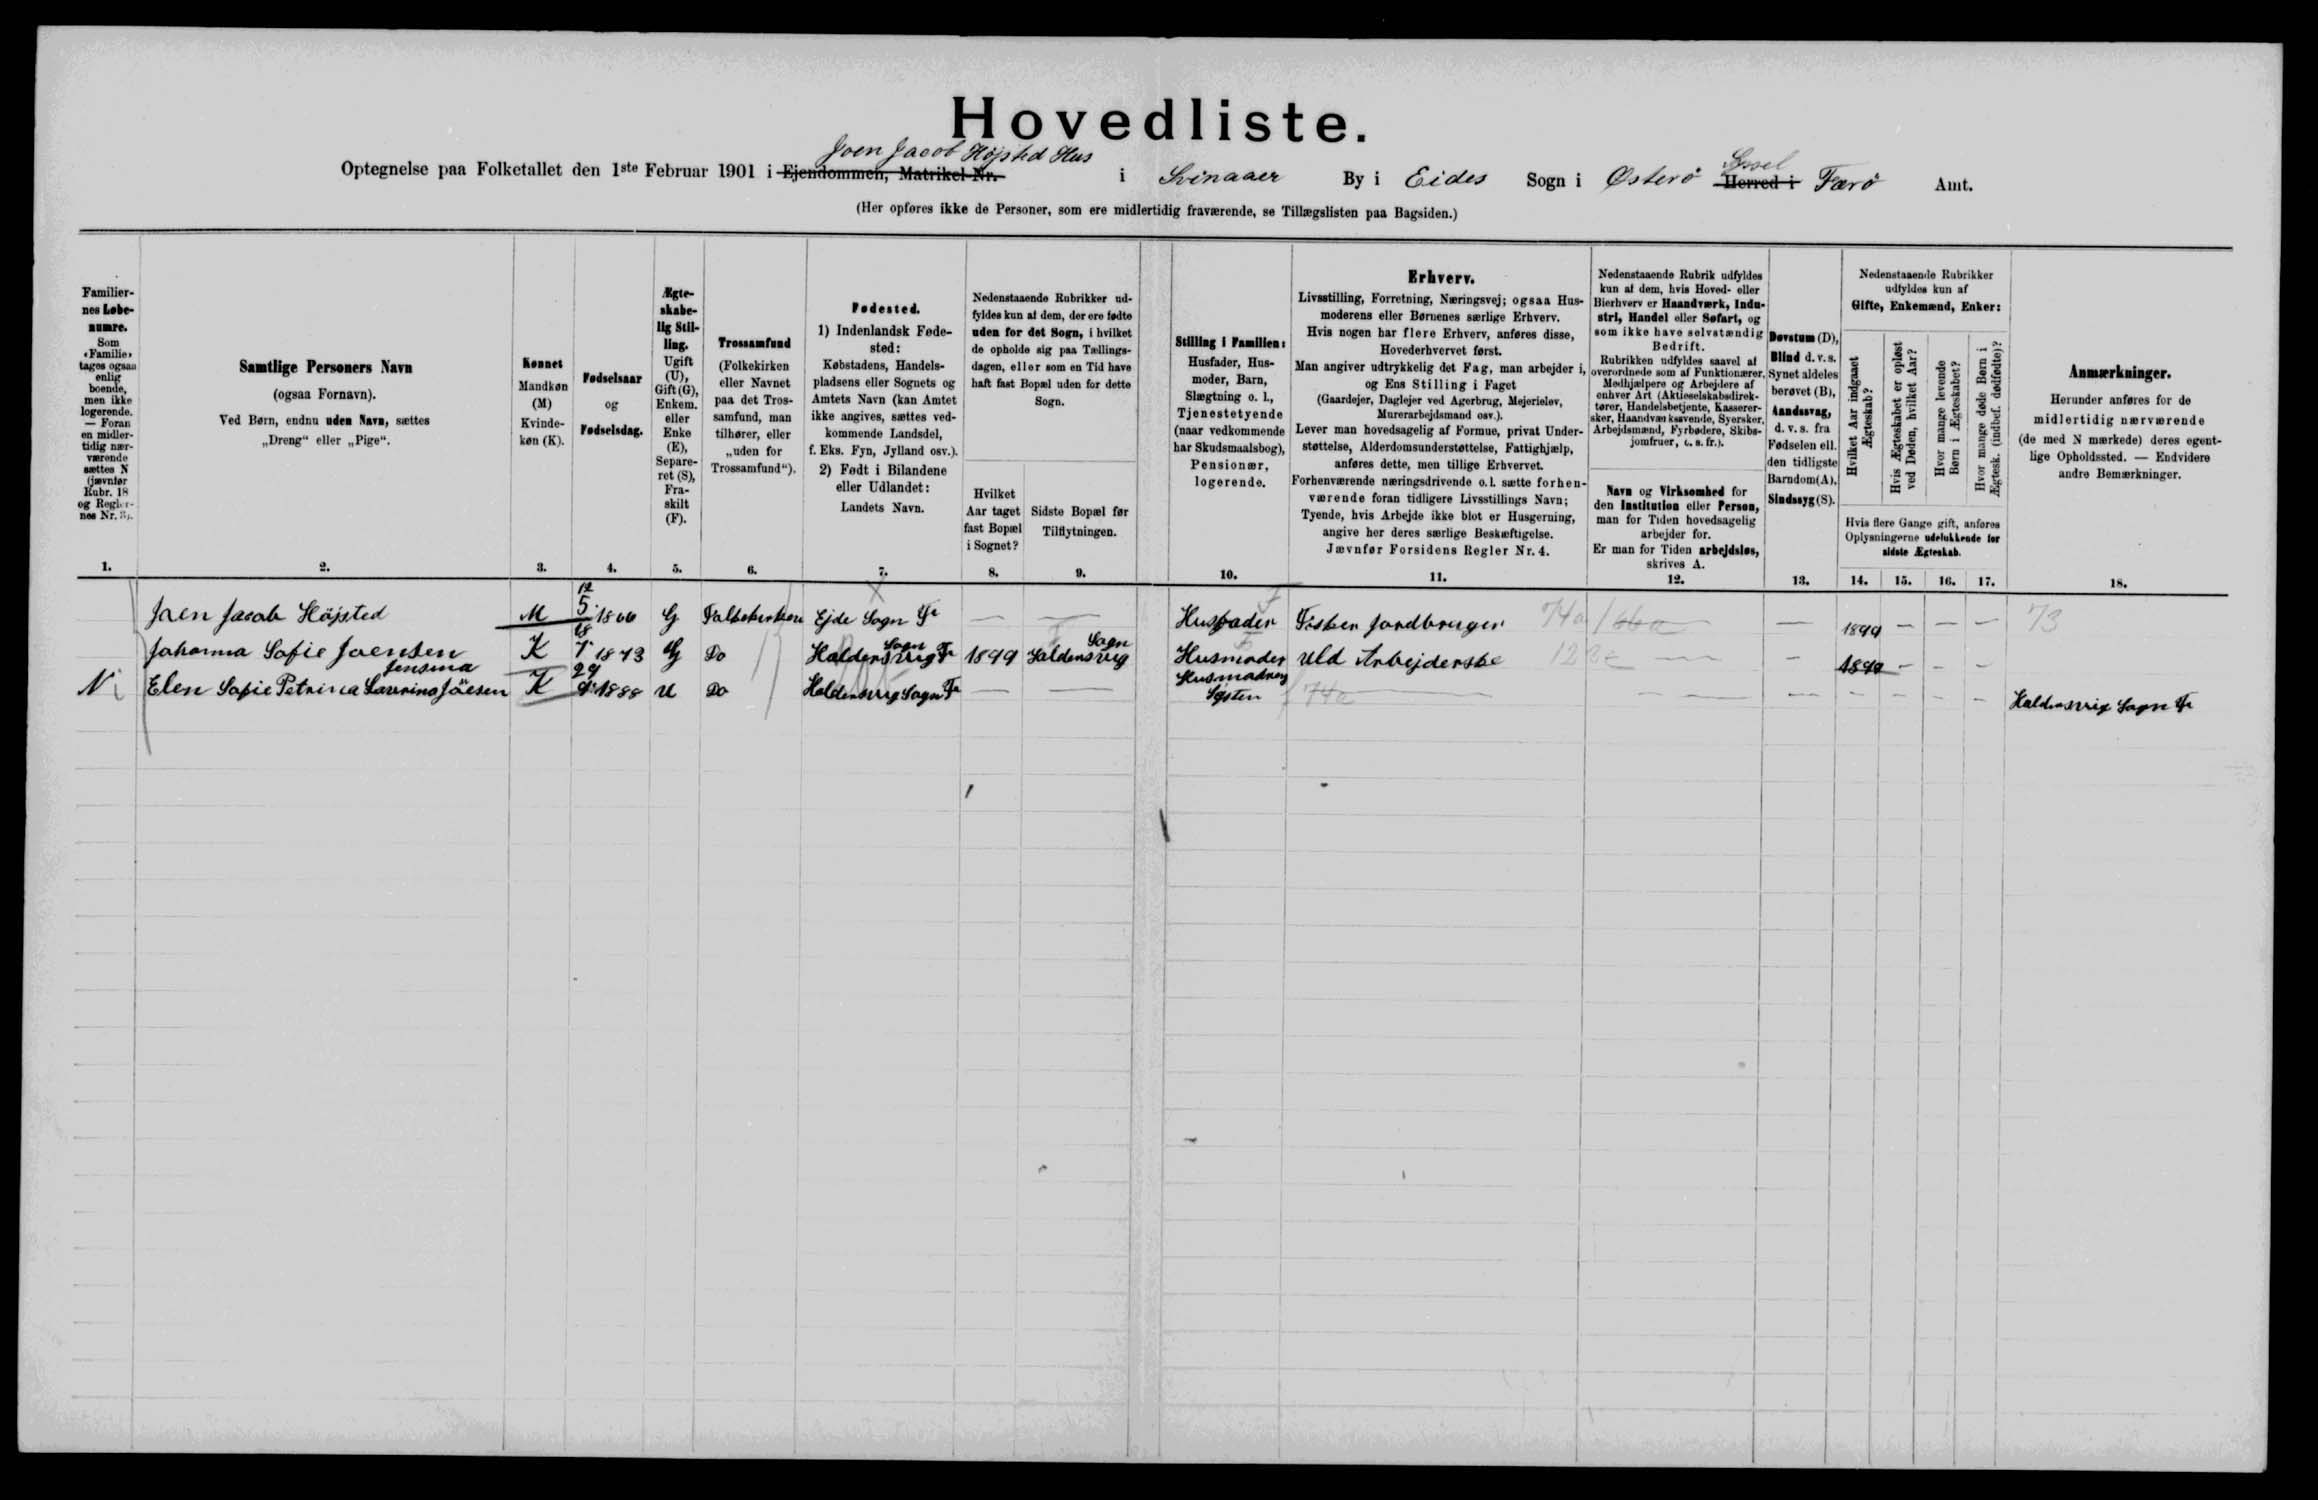 Hovedliste.
Joen Jacob Höjsted Hus
Optegnelse paa Folketallet den 1ste Februar 1901 i Ejendommen, Matrikel-Nr. i Svinaaer By i Eides Sogn i Østerö Syssel Herred i Færö Amt.
(Her opføres ikke de Personer, som ere midlertidig fraværende, se Tillægslisten paa Bagsiden.)
Familiernes Løbenumre.
Som «Familie» tages ogsaa enlig boende, men ikke logerende. — Foran en midlertidig nærværende sættes N (jævnfør Rubr. 18 og Reglernes Nr. 3).
Samtlige Personers Navn
(ogsaa Fornavn).
Ved Børn, endnu uden Navn, sættes
„Dreng“ eller „Pige“.
Kønnet
Mandkøn (M)
Kvindekøn (K).
Fødselsaar
og
Fødselsdag.
Ægteskabelig Stilling.
Ugift (U), Gift (G), Enkem. eller Enke (E), Separeret (S), Fraskilt (F).
Trossamfund
(Folkekirken eller Navnet paa det Trossamfund, man tilhører, eller „uden for Trossamfund“).
Fødested.
1) Indenlandsk Fødested:
Købstadens, Handelspladsens eller Sognets og Amtets Navn (kan Amtet ikke angives, sættes vedkommende Landsdel, f. Eks. Fyn, Jylland osv.).
2) Født i Bilandene eller Udlandet:
Landets Navn.
Nedenstaaende Rubrikker udfyldes kun af dem, der ere fødte uden for det Sogn, i hvilket de opholde sig paa Tællingsdagen, eller som en Tid have haft fast Bopæl uden for dette Sogn.
Hvilket Aar taget fast Bopæl i Sognet?
Sidste Bopæl før Tilflytningen.
Stilling i Familien:
Husfader, Husmoder, Barn, Slægtning o. l., Tjenestetyende (naar vedkommende har Skudsmaalsbog), Pensionær, logerende.
Erhverv.
Livsstilling, Forretning, Næringsvej; ogsaa Husmoderens eller Børnenes særlige Erhverv.
Hvis nogen har flere Erhverv, anføres disse, Hovederhvervet først.
Man angiver udtrykkelig det Fag, man arbejder i, og Ens Stilling i Faget
(Gaardejer, Daglejer ved Agerbrug, Mejerielev, Murerarbejdsmand osv.).
Lever man hovedsagelig af Formue, privat Understøttelse, Alderdomsunderstøttelse, Fattighjælp, anføres dette, men tillige Erhvervet.
Forhenværende næringsdrivende o. l. sætte forhenværende foran tidligere Livsstillings Navn;
Tyende, hvis Arbejde ikke blot er Husgerning, angive her deres særlige Beskæftigelse.
Jævnfør Forsidens Regler Nr. 4.
Nedenstaaende Rubrik udfyldes kun af dem, hvis Hoved- eller Bierhverv er Haandværk, Industri, Handel eller Søfart, og som ikke have selvstændig Bedrift.
Rubrikken udfyldes saavel af overordnede som af Funktionærer, Medhjælpere og Arbejdere af enhver Art (Aktieselskabsdirektører, Handelsbetjente, Kasserersker, Haandværkssvende, Syersker, Arbejdsmænd, Fyrbødere, Skibsjomfruer, o. s. fr.).
Navn og Virksomhed for den Institution eller Person, man for Tiden hovedsagelig arbejder for.
Er man for Tiden arbejdsløs, skrives A.
Døvstum (D), Blind d. v. s. Synet aldeles berøvet (B), Aandssvag, d. v. s. fra Fødselen ell. den tidligste Barndom (A), Sindssyg (S).
Nedenstaaende Rubrikker udfyldes kun af
Gifte, Enkemænd, Enker:
Hvilket Aar indgaaet Ægteskab?
Hvis Ægteskabet er opløst ved Døden, hvilket Aar?
Hvor mange levende Børn i Ægteskabet?
Hvor mange døde Børn i Ægtesk. (indbef. dødfødte)?
Hvis flere Gange gift, anføres Oplysningerne udelukkende for sidste Ægteskab.
Anmærkninger.
Herunder anføres for de midlertidig nærværende (de med N mærkede) deres egentlige Opholdssted. — Endvidere andre Bemærkninger.
1. 2. 3. 4. 5. 6. 7. 8. 9. 10. 11. 12. 13. 14. 15. 16. 17. 18.
Joen Jacob Höjsted M 12/5 1866 G Folkekirken Ejde Sogn Fr — — Husfader Fisker Jordbruger 74a — — 1899 — — — 73
Johanna Sofie Joensen K 18/7 1873 G Do Haldersvig Sogn Fr 1899 Haldersvig Sogn Husmoder Uld Arbejderske — — 1899 — — —
N Elen Sofie Petrina Laurina Jensina Jöesen K 29 1888 U Do Haldersvig Sogn Fr — — Husmoders Søster 74a — — — — — — — Haldersvig Sogn Fr